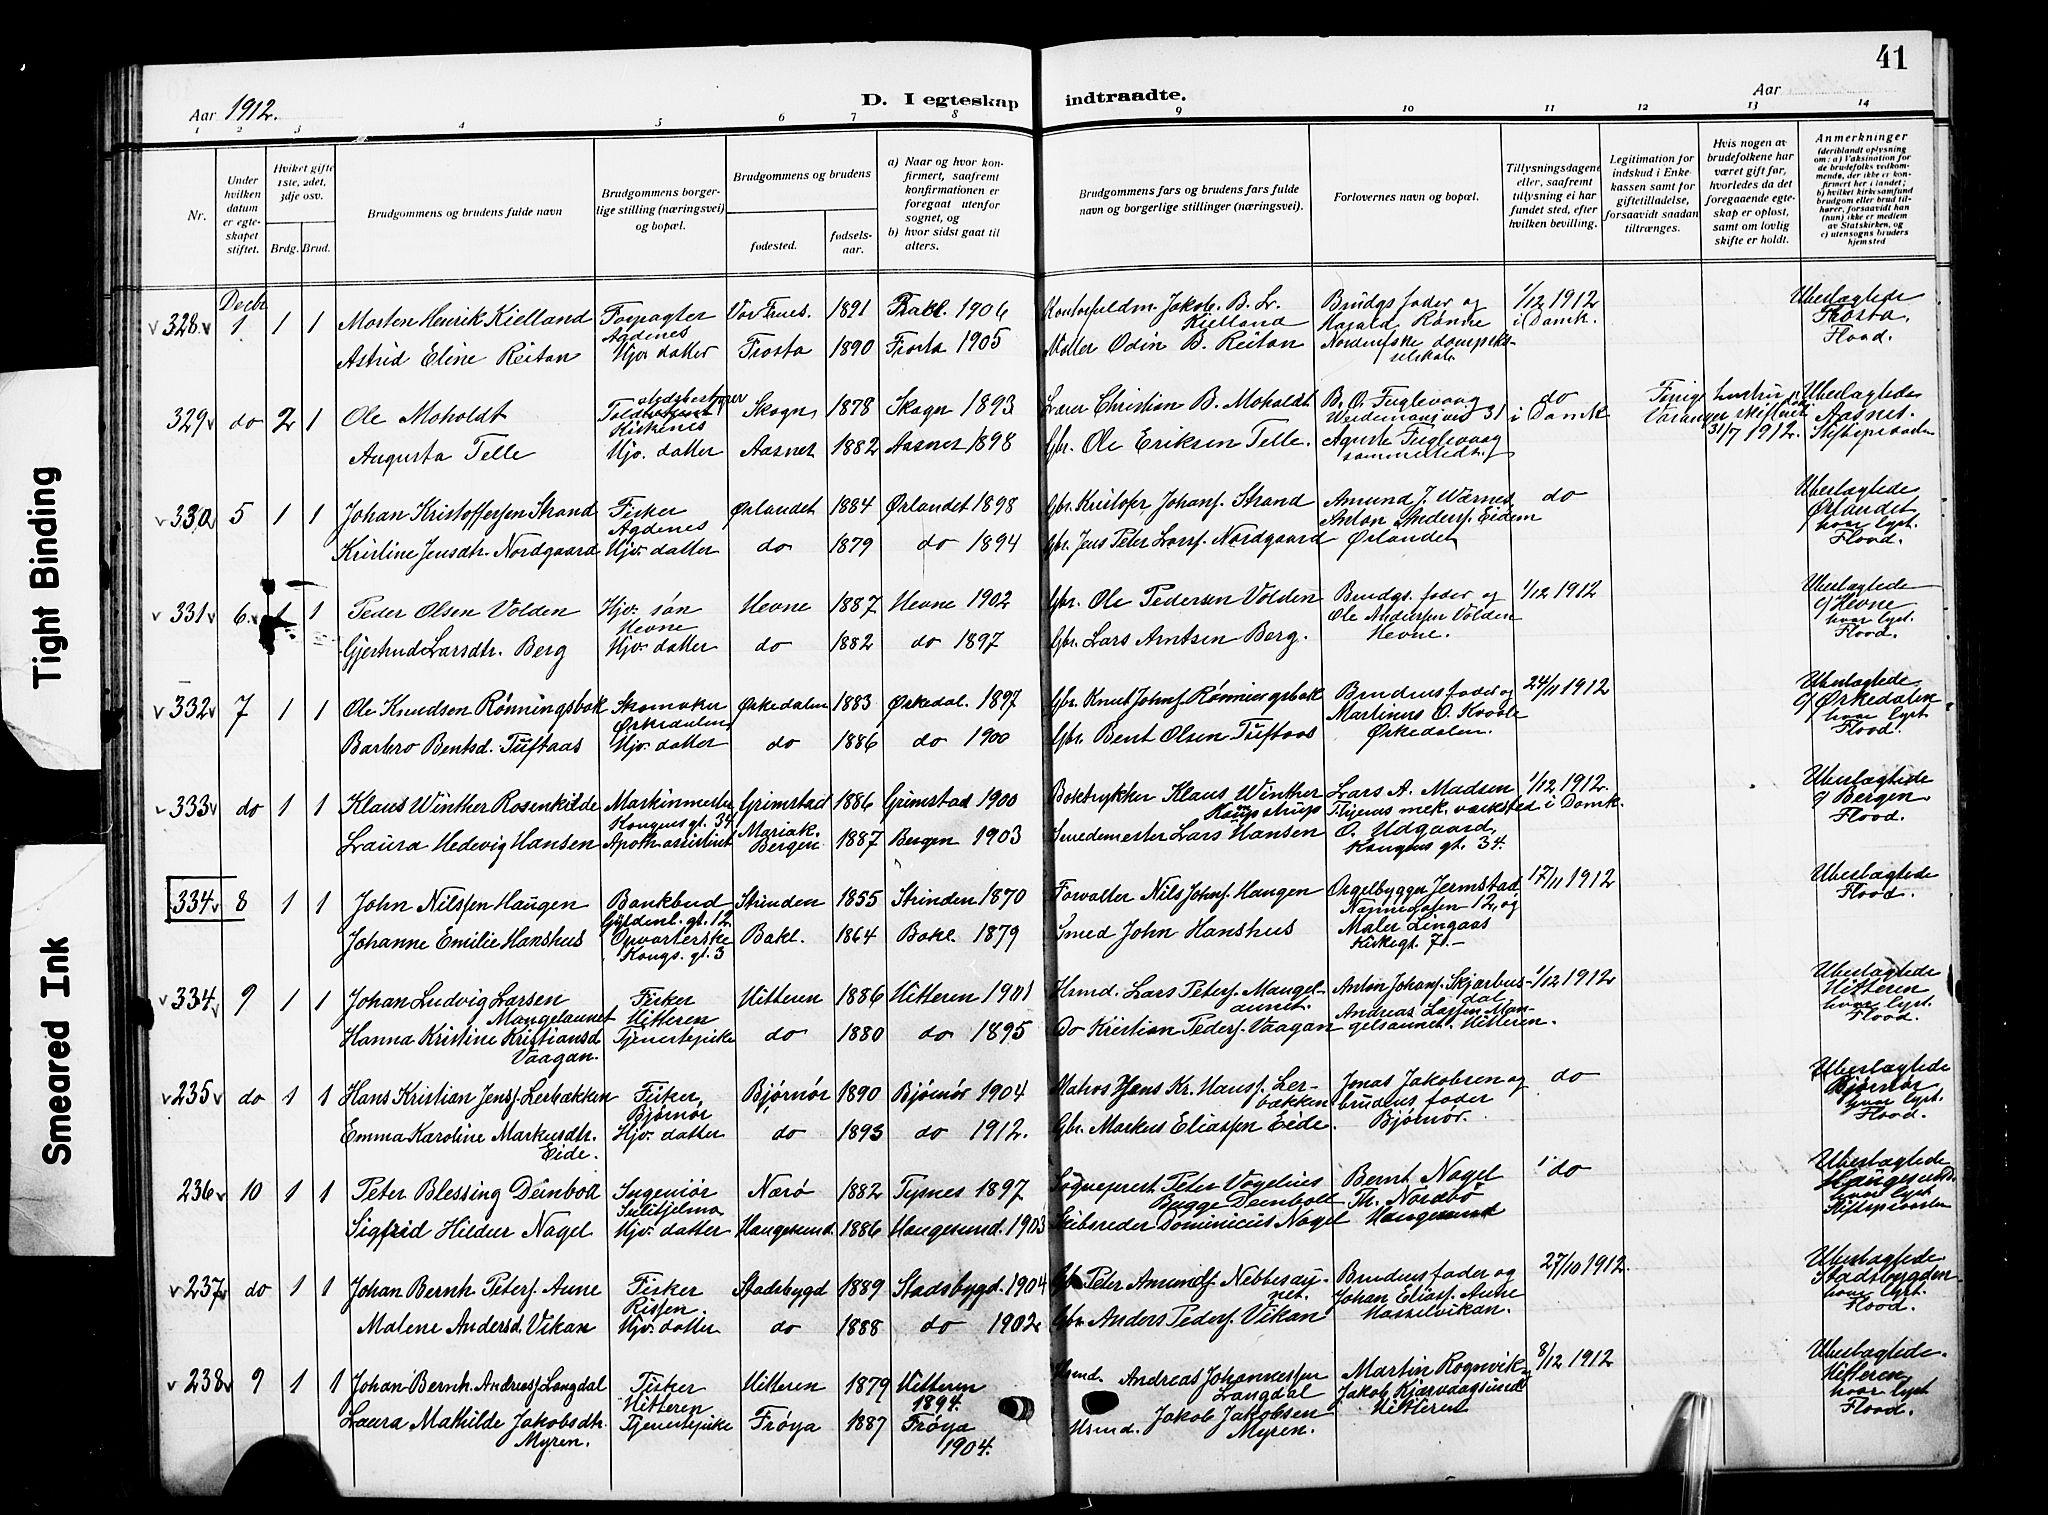 41
Aar 1912.
D. I egteskap indtraadte.
Aar
1 2 3 4 5 6 7 8 9 10 11 12 13 14
Nr.
Under hvilken datum er egteskapet stiftet.
Hvilket gifte 1ste, 2det, 3dje osv.
Brdg. Brud.
Brudgommens og brudens fulde navn
Brudgommens borgerlige stilling (næringsvei) og bopæl.
Brudgommens og brudens
fødested. fødselsaar.
a) Naar og hvor konfirmert, saafremt konfirmationen er foregaat utenfor sognet, og
b) hvor sidst gaat til alters.
Brudgommens fars og brudens fars fulde navn og borgerlige stillinger (næringsvei).
Forlovernes navn og bopæl.
Tillysningsdagene eller, saafremt tillysning ei har fundet sted, efter hvilken bevilling.
Legitimation for indskud i Enkekassen samt for giftetilladelse, forsaavidt saadan tiltrænges.
Hvis nogen av brudefolkene har været gift før, hvorledes da det foregaaende egteskap er opløst, samt om lovlig skifte er holdt.
Anmerkninger
(deriblandt oplysning om: a) Vaksination for de brudefolks vedkommende, der ikke er konfirmert her i landet; b) hvilket kirkesamfund brudgom eller brud tilhører, forsaavidt han (hun) ikke er medlem av Statskirken, og c) utensogns bruders hjemsted
Decbr
328. 1 1 1 Morten Henrik Kielland Forpagter Agdenes Vor Frues. 1891 Bakl. 1906 Jakob. B. Kielland Brudgs fader og Harald Rønne 1/12 1912 i Domk. Ubeslægtede Frosta. Flood.
Astrid Eline Reitan Hjv. datter Frosta 1890 Frosta 1905 Møller Odin B. Reitan Nordenfjske dampskselskab
329 do 2 1 Ole Moholdt Kirkenes Skogn 1878 Skogn 1893 Lærer Christian B. Moholdt B. O. Fuglevaag Weidemansvei 31 do i Domk 31/7 1912. Ubeslægtede Aasnes. Stiftsprovsten
Augusta Telle Hjv. datter Aasnes 1882 Aasnes 1898 Gbr. Ole Eriksen Telle. Agnete Fuglevaag sammesteds.
330 5 1 1 Johan Kristoffersen Strand Fisker Agdenes Ørlandet 1884 Ørlandet 1898 Gbr. Kristofr Johans. Strand Amund J. Warnes, Anton Anders. Eidem Ørlandet do Ubeslægtede Ørlandet hvor lyst. Flood.
Kristine Jensdtr. Nordgaard Hjv. datter do 1879 do 1894 Gbr. Jens Peter Larss. Nordgaard
331 6. 1 1 Peder Olsen Volden Hjv. søn Hevne Hevne 1887 Hevne 1902 Gbr. Ole Pedersen Volden Brudgs. fader og Ole Andersen Volden Hevne. 1/12 1912 Ubeslægtede Hevne hvor lyst. Flood.
Gjertrud Larsdtr. Berg Hjv. datter do 1882 do 1897 Gbr. Lars Arntsen Berg.
332 7 1 1 Ole Knudsen Rønningsbak Skomaker Orkedalen Orkedalen 1883 Orkedal. 1897 Gbr. Knut Johns. Rønningsbak Brudens fader og Martinus O. Kvaale Orkedalen. 24/11 1912 Ubeslægtede Orkedalen hvor lyst Flood.
Barbro Bentsd. Tuftaas Hjv. datter do 1886 do 1900 Gbr. Bent Olsen Tuftaas
333 do 1 1 Klaus Winther Rosenkilde Maskinmester Kongensgt. 34 Grimstad 1886 Grimstad 1900 Boktrykker Klaus Winther Lars A. Madsen mek. værksted 1/12 1912. i Domk. Ubeslægtede Bergen Flood.
Laura Hedevig Hansen Apoth. assistent Mariak. Bergen 1887 Bergen 1903 Smedemester Lars Hansen O. Udgaard, Kongens gt. 34.
334 8 1 1 John Nilssen Haugen Bankbud Gyldenl. gt. 12 Strinden 1855 Strinden 1870 Forvalter Nils Johns. Haugen Orgelbygger Jermstad, Nonnegaten 12, og Maler Lingaas Kirkegt. 71. 17/11 1912 Ubeslægtede Flood.
Johanne Emilie Hanshus Opvarterske Kongs. gt. 3 Bakl. 1864 Bakl. 1879 Smed John Hanshus
334 9 1 1 Johan Ludvig Larsen Maugelaunet Fisker Hitteren Hitteren 1886 Hitteren 1901 Hsmd. Lars Peters. Maugelaunet. Anton Johans. Skjærbusdal, Andreas Larsen Maugelsaunet. Hitteren. 1/12 1912 Ubeslægtede Hitteren hvor lyst. Flood.
Hanna Kristine Kristiansd Vaagan. Tjenestepike do 1880 do 1895 Do Kristian Peders. Vaagan
235 do 1 1 Hans Kristian Jenss. Lerbakken Fisker, Bjørnør Bjørnør 1890 Bjørnør 1904 Matros Hans Kr. Hanss. Lerbakken Jonas Jakobsen og brudens fader Bjørnør. do Ubeslægtede Bjørnør hvor lyst. Flood.
Emma Karoline Markusdtr. Eide. Hjv. datter do 1893 do 1912. Gbr. Markus Eliassen Eide.
236 10 1 1 Peter Blessing Deinboll Ingeniør Sulitjelma Nærø 1882 Tysnes 1897 Sogneprest Peter Vogelius Bugge Deinboll Bernt Nagel Th. Nordbø Haugesund do Ubeslægtede Haugesund. hvor lyst Stiftsprovsten
Sigfrid Hildur Nagel Hjv. datter Haugesund. 1886 Haugesund. 1903 Skibsreder Dominicus Nagel
237 do 1 1 Johan Bernh. Peters. Aune Fisker Rissen. Stadsbygd 1889 Stadsbygd. 1904 Peter Amunds. Nebbesaunet. Brudens fader og Johan Elias. Aune Hasselvikan. 27/10 1912. Ubeslægtede Stadsbygden hvor lyst. Flood.
Malene Andersd. Vikan Hjv. datter do 1888 do 1902 Gbr. Anders Peders. Vikan
238 9 1 1 Johan Bernh. Andreass. Langdal Fisker Hitteren Hitteren 1879 Hitteren 1894. Hsmd. Andreas Johannessen Langdal Martin Rognvik Jakob Kjærvaagsund Hitteren 8/12 1912 Ubeslægtede. Hitteren, hvor lyst Flood.
Laura Mathilde Jakobsdtr. Myren. Tjenestepike Frøya 1887 Frøya 1904. Hsmd. Jakob Jakobsen Myren.
Tight Binding
Smeared Ink